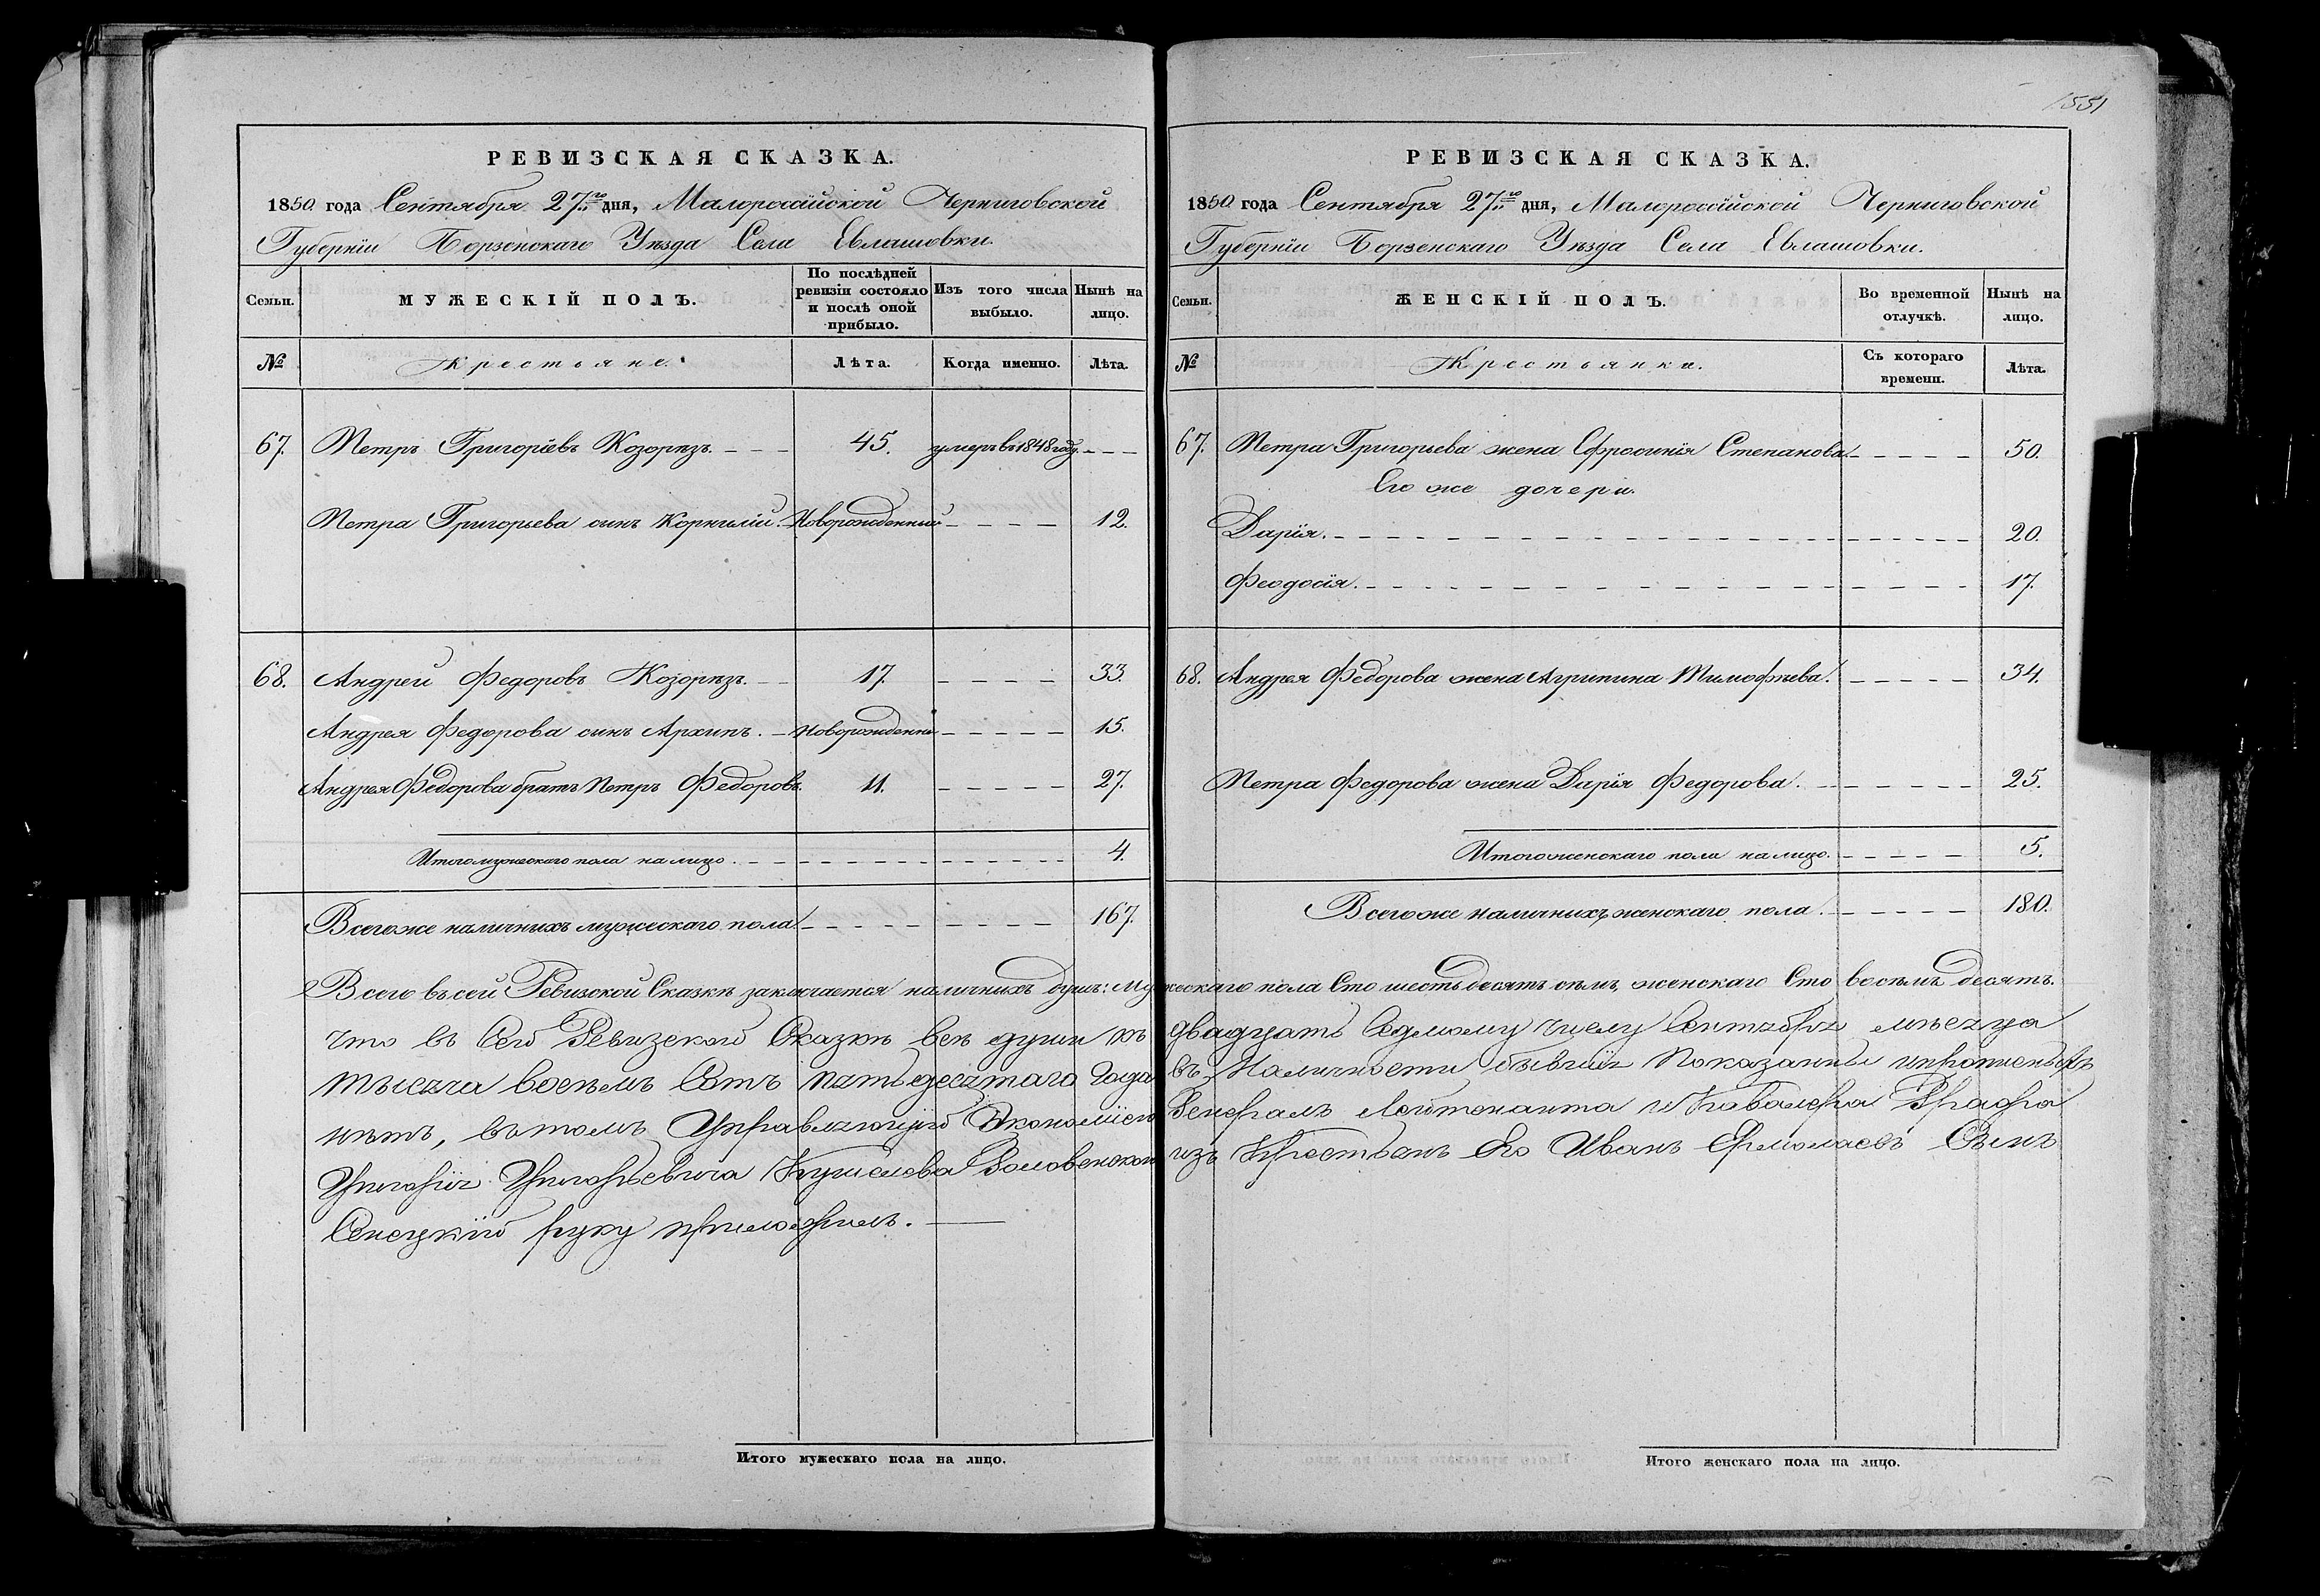 1551
РЕВИЗСКАЯ СКАЗКА.
1850 года Сентября 27го дня, Малороссійской Черниговской
Губерніи Борзенскаго Уѣзда Села Евлашовки.
Семьи.
МУЖЕСКІЙ ПОЛЪ.
По послѣдней ревизіи состояло и послѣ оной прибыло.
Изъ того числа выбыло.
Нынѣ на лицо.
№
Крестьяне.
Лѣта.
Когда именно.
Лѣта.
67. Петръ Григоріевъ Козорѣзъ. 45. умеръ въ 1848 году.
Петра Григорьева сынъ Корнилій. Новорожденный 12.
68. Андрей Федоровъ Козорѣзъ. 17. 33.
Андрея Федорова сынъ Архипъ. Новорожденный 15.
Андрея Федорова братъ Петръ Федоровъ. 11. 27.
Итого мужескаго пола на лицо. 4.
Всего же наличныхъ мужескаго пола 167.
РЕВИЗСКАЯ СКАЗКА.
1850 года Сентября 27го дня, Малороссійской Черниговской
Губерніи Борзенскаго Уѣзда Села Евлашовки.
Семьи.
ЖЕНСКІЙ ПОЛЪ.
Во временной отлучкѣ.
Нынѣ на лицо.
№
Крестьянки.
Съ котораго времени.
Лѣта.
67. Петра Григорьева жена Ефросинія Степанова 50.
Его же дочери.
Дарія. 20.
Феодосія. 17.
68. Андрея Федорова жена Агрипина Тимофѣева. 34.
Петра Федорова жена Дарія Федорова. 25.
Итого женскаго пола на лицо. 5.
Всего же наличныхъ женскаго пола. 180.
Всего въ сей Ревизской Сказкѣ заключается наличныхъ душъ: мужескаго пола Сто шестьдесятъ семь, женскаго Сто восемь десятъ.
что въ Сей Ревизской Сказкѣ всѣ души къ двадцать Седмому числу Сентября мѣсяца
тысяча восемь Сотъ пятьдесятаго года въ Наличности бывшія показанны и прописныхъ
нѣтъ, въ томъ Управляющій Экономіею Генералъ Лейтенанта и Кавалера Графа
Григорія Григорьевича Кушелева изъ Крестьянъ Его Иванъ Ермолаевъ Сынъ
руку приложилъ.
Итого мужескаго пола на лицо.
Итого женскаго пола на лицо.